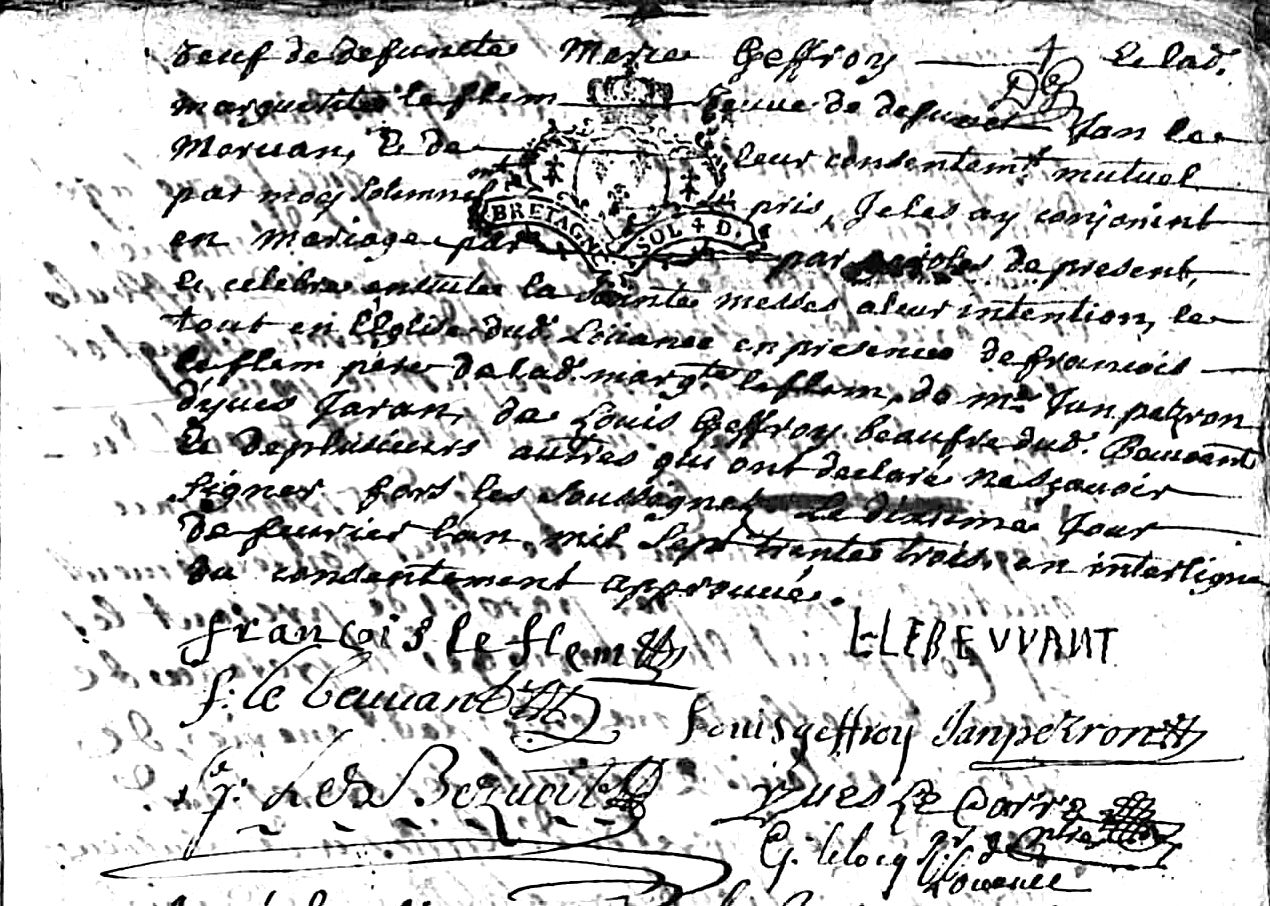 veuf de defuncte Marie Geffroy et lad.
marguerite le flem veuve de defunct Jan le
Moruan, et de leur consentemt mutuel
par moy solemnelmt pris, Je les ay conjoint
en mariage par par parolles de present,
et celebré ensuite la Sainte messe a leur intention, le
tout en l'église dud. Loüanec en presence de francois
le flem pere de lad. margte le flem, de mre Jan petzron
d'yues Jaran, de Louis Geffroy beaufre dud.
et de plusieurs autres qui ont declaré ne sçauoir
signer fors les soussignez Le dixieme Jour
de feurier l'an mil sept trente trois, en interligne
du consentement approuué.
françois le flem LLEBEVVANT
f. le beuuant
Louis geffroy Jan peZron
BRETAGNE SOL 4 D.
yues Le
G. le locq
Loüanec